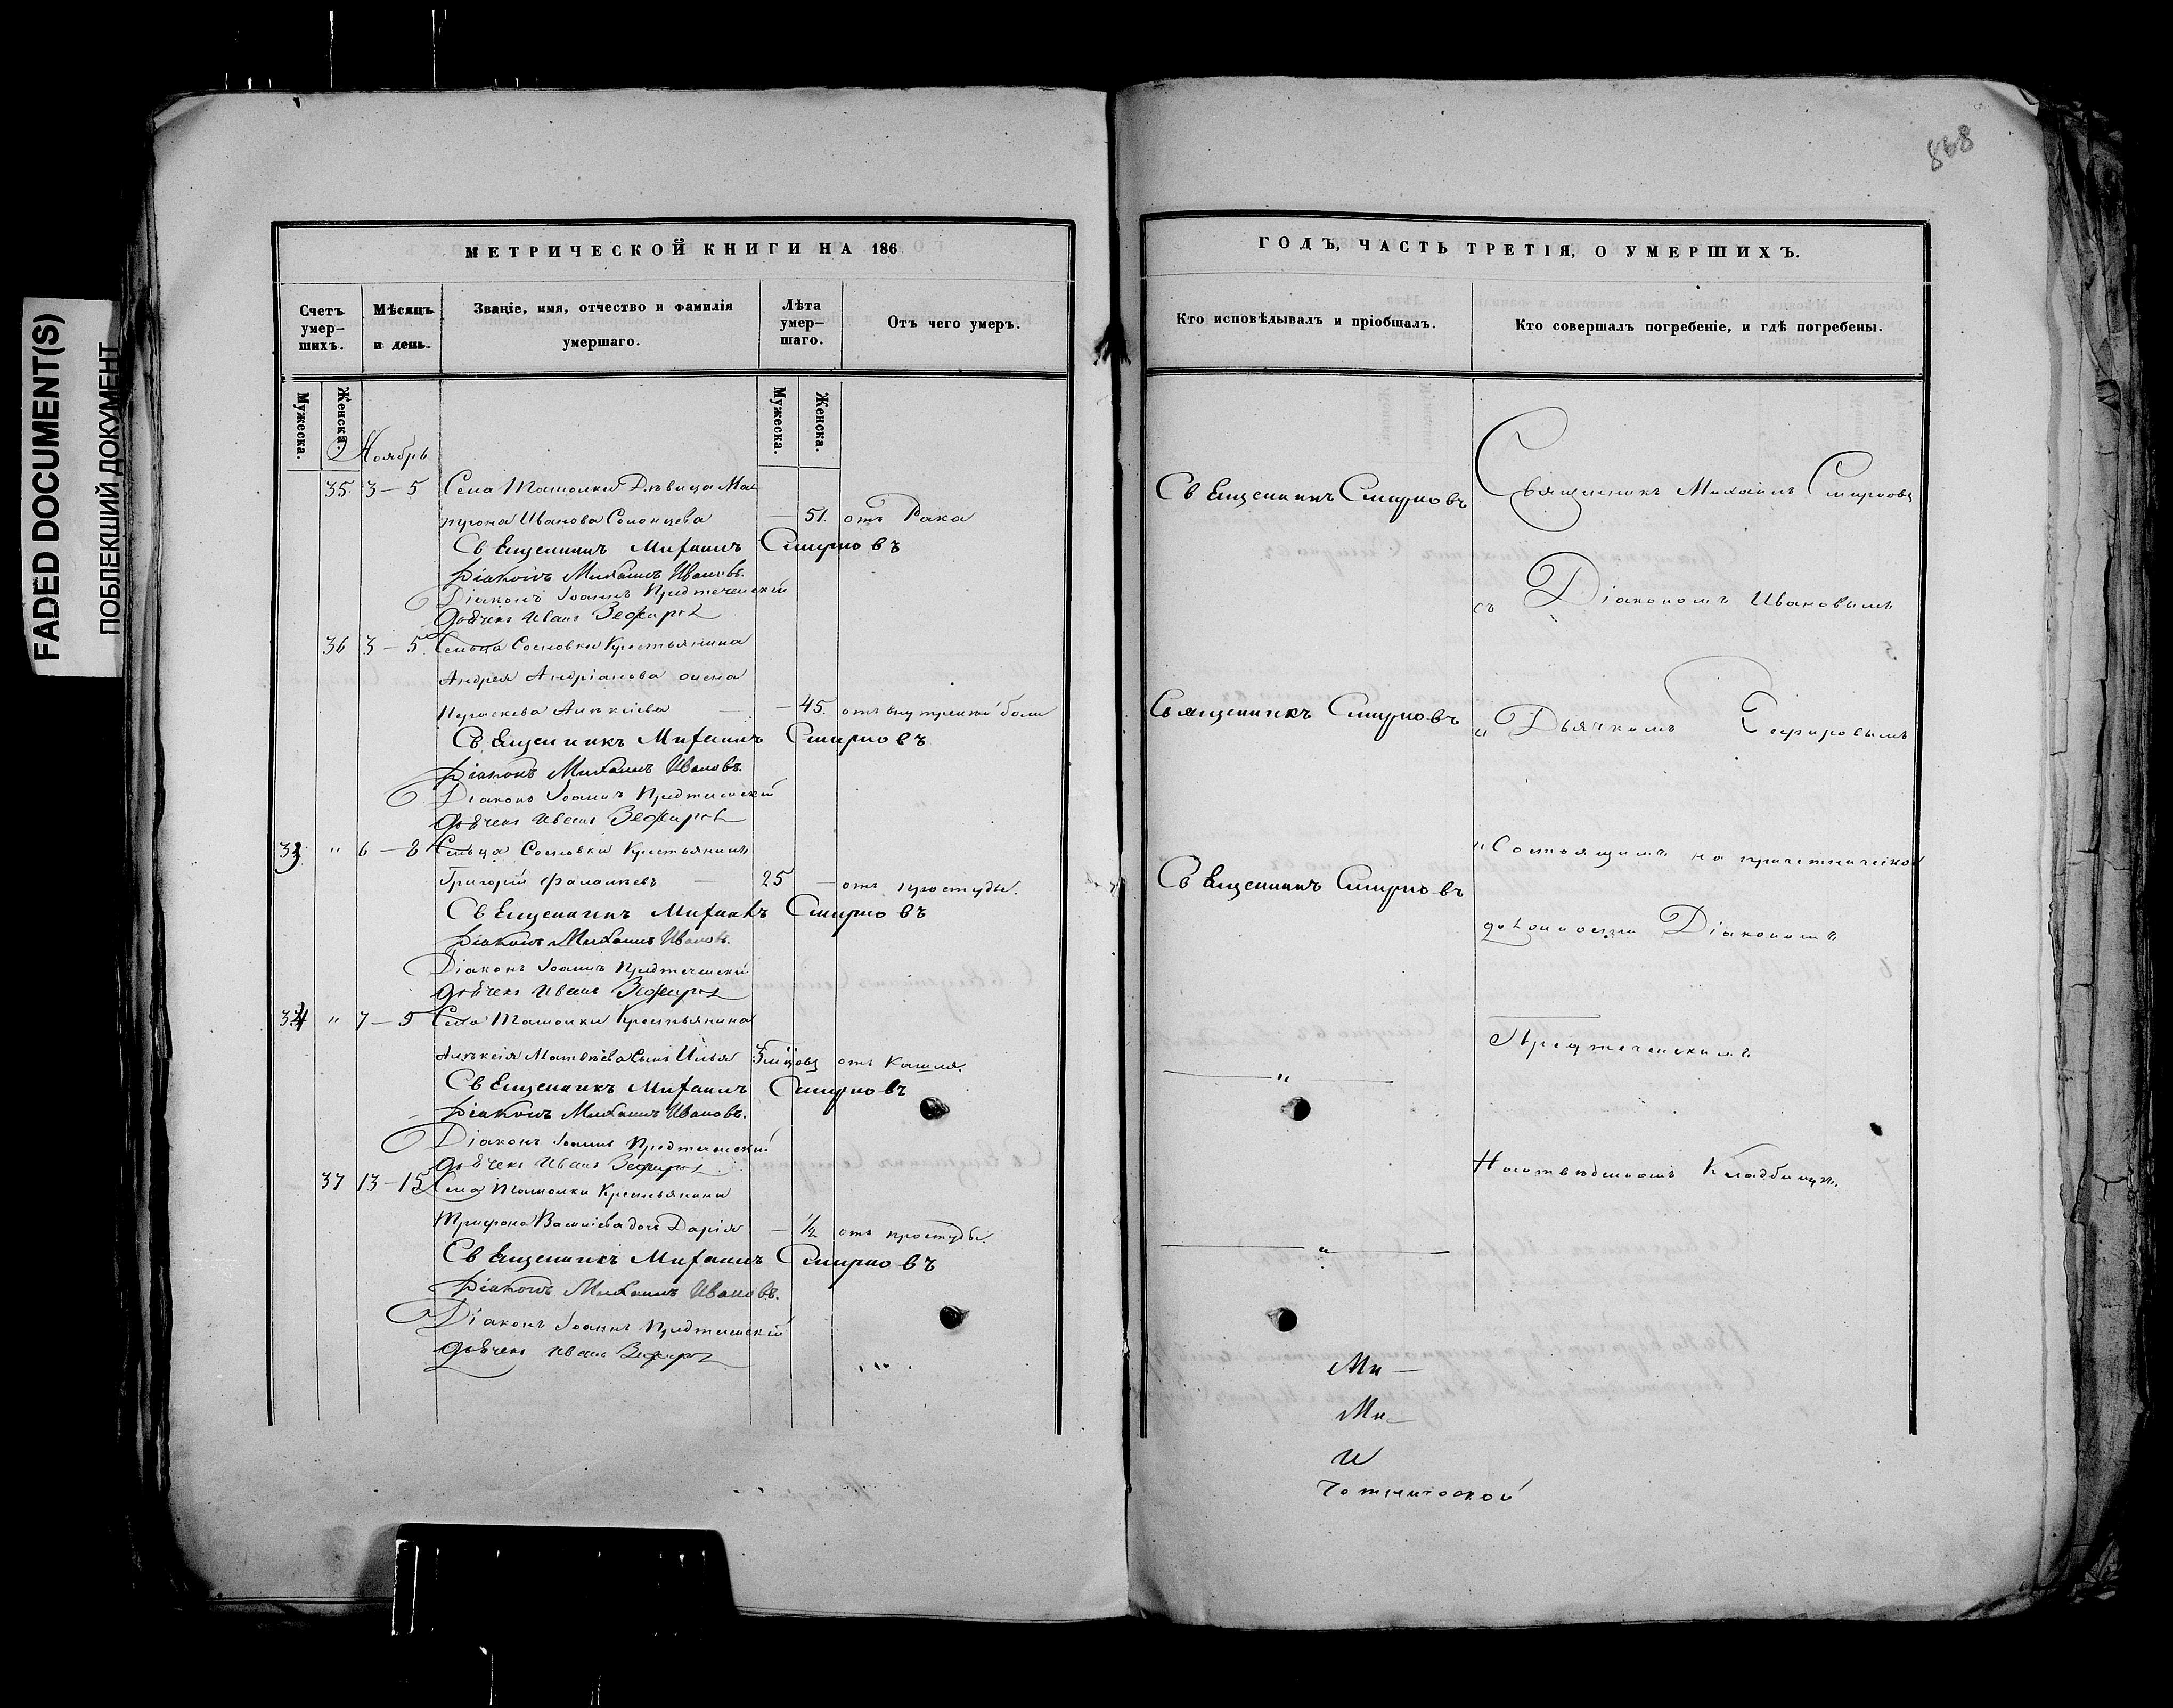 FADED DOCUMENT(S)
ПОБЛЕКШИЙ ДОКУМЕНТ
868
МЕТРИЧЕСКОЙ КНИГИ НА 186
Счетъ умер-шихъ.
Мѣсяцъ и день.
Званіе, имя, отчество и фамилія умершаго.
Лѣта умер-шаго.
Отъ чего умеръ.
Мужеска.
Женска.
Мужеска.
Женска.
Ноябрь
35 3–5 Села Ташолки Дѣвица Мат
рона Иванова Солонцева — 51. отъ Рака
Священникъ Михаилъ Смирновъ
Діаконъ Михаилъ Ивановъ.
Діаконъ Іоаннъ Предтеченскій
Дьячекъ Иванъ Зефировъ
36 3–5 Сельца Сосновки Крестьянина
Андрея Андріанова жена
Параскева Алексіева — 45. отъ внутренней боли
Священникъ Михаилъ Смирновъ
Діаконъ Михаилъ Ивановъ.
Діаконъ Іоаннъ Предтеченскій
Дьячекъ Иванъ Зефировъ
33 " 6–8 Сельца Сосновки Крестьянинъ
Григорій — 25 — отъ простуды.
Священникъ Михаилъ Смирновъ
Діаконъ Михаилъ Ивановъ.
Діаконъ Іоаннъ Предтеченскій
Дьячекъ Иванъ Зефировъ
34 " 7–9 Села Ташолки Крестьянина
Алексія Матвѣева сынъ Илья отъ Кашля.
Священникъ Михаилъ Смирновъ
Діаконъ Михаилъ Ивановъ.
Діаконъ Іоаннъ Предтеченскій
Дьячекъ Иванъ Зефировъ
37 13–15 Села Ташолки Крестьянина
Трифона дочь Дарія — 1/2 отъ простуды.
Священникъ Михаилъ Смирновъ
Діаконъ Михаилъ Ивановъ.
Діаконъ Іоаннъ Предтеченскій
Дьячекъ Иванъ Зефировъ
ГОДЪ, ЧАСТЬ ТРЕТІЯ, О УМЕРШИХЪ.
Кто исповѣдывалъ и пріобщалъ.
Кто совершалъ погребеніе, и гдѣ погребены.
Священникъ Смирновъ
Священникъ Смирновъ
Священникъ Смирновъ
— " —
— " —
Священникъ Михаилъ Смирновъ
съ Діакономъ Ивановымъ
" Дьячкомъ Зефировымъ
" Состоящимъ на причетнической
должности Діакономъ
Предтеченскимъ
На отведенномъ Кладбищѣ.
Ми —
Ми —
И